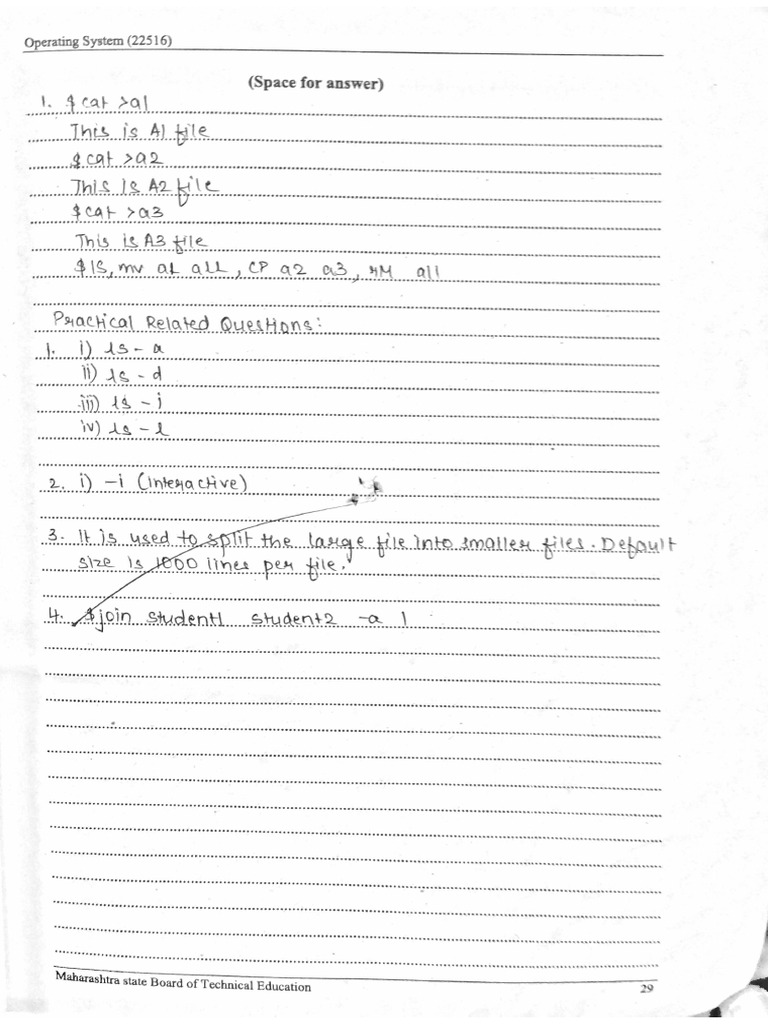 Operating System (22516)
(Space for answer)
1. $ cat >a1
This is A1 file
$ cat >a2
This is A2 file
$ cat >a3
This is A3 file
$ ls, mv a1 a11, CP a2 a3, rM a11
Practical Related Questions:
1. i) ls - a
ii) ls - d
iii) ls - i
iv) ls - l
2. i) -i (Interactive)
3. It is used to split the large file into smaller files. Default
size is 1000 lines per file.
4. $join student1 student2 -a 1
Maharashtra state Board of Technical Education
29